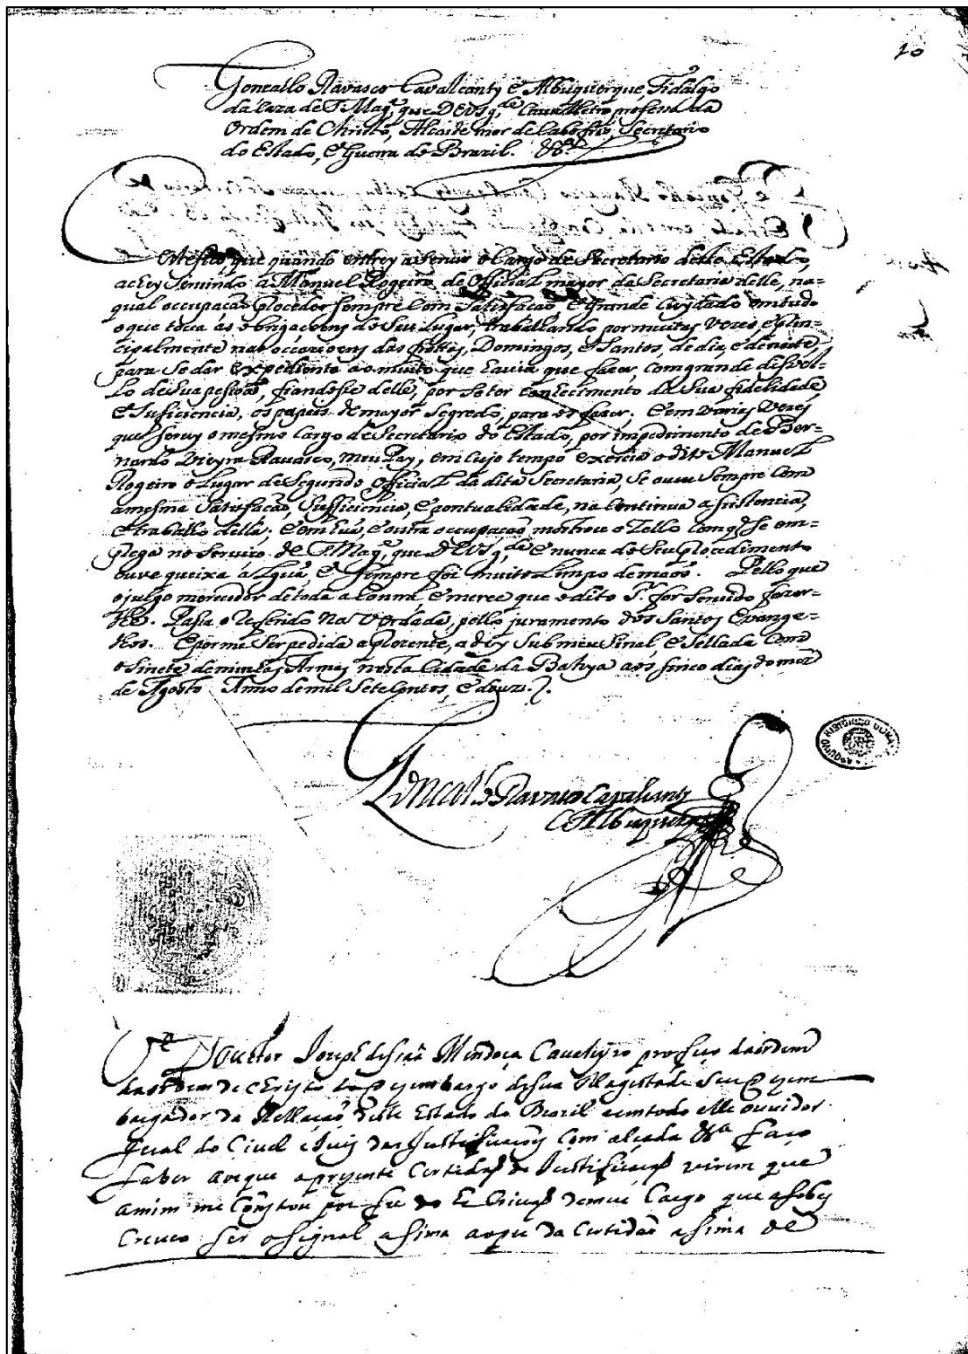 10
Goncallo Ravasco Cavalcanty e Albuquerque Fidalgo
da Caza de S Mag.e que DEVS g.de Cavalleiro professo da
Ordem de Christo, Alcaide mor de Cabo frio, Secretario
do Estado, e Guerra do Brazil. &c.a
Certefico que quando entrey a servir o Cargo de Secretario deste Estado,
achey servindo a Manuel Rogeiro de Official mayor da Secretaria delle, na-
qual occupação procedeo sempre com satisfação, e grande cuydado em tudo
o que toca ás obrigacoens do seu lugar, trabalhando por muitas vezes, e prin-
cipalmente nas occazioens das frottas, Domingos, e Santos, de dia, e de noite,
para se dar expediente ao muito que havia que fazer, com grande disvel-
lo de sua pessoa, fiandosse delle, por se ter conhecimento da sua fidelidade,
e suficiencia, os papeis de mayor segredo, para os fazer. E em varias vezes
que servy o mesmo cargo de Secretario do Estado, por impedimento de Ber-
nardo Vieyra Ravasco, meu Pay, em cujo tempo exercia o dito Manuel
Rogeiro o lugar de segundo Official da dita Secretaria, se ouve sempre com
a mesma satisfação, sufficiencia, e pontualidade, na continua assistencia,
e trabalho della; e em hua, e outra occupação mostrou o zello com q se em-
prega no serviço de S Mag.e que DEVS g.de e nunca do seu procedimento
ouve queixa algũa, e sempre foi muito limpo de mãos. Pello que
o julgo merecedor de toda a honra, e merce que o dito S.r for servido fazer-
lhe. Passa o referido na verdade, pello juramento dos Santos Evange-
lhos. E por me ser pedida a prezente, a dey sub meu sinal, e sellada com
o sinete de minhas Armas nesta Cidade da Bahya aos sinco dias do mez
de Agosto Anno de mil setecentos, e douz.
Goncallo Ravasco Cavalcanty
e Albuquerque
ARQUIVO HISTÓRICO ULTRAMARINO
O Douctor Joseph de Mendoça Cavaleyro professo da ordem
da ordem de Christo do Dezembargo de sua Magestade seu Dezem
bargador da Rellação deste Estado do Brazil e em todo elle ouvidor
geral do Civel e Juiz das Justificacoes com alçada &a Faço
saber aos que a prezente Certidão de Justificação virem que
a mim me Constou por fee do Escrivão de meu Cargo que a sobes
creveo ser o signal asima ao pe da Certidão asima de